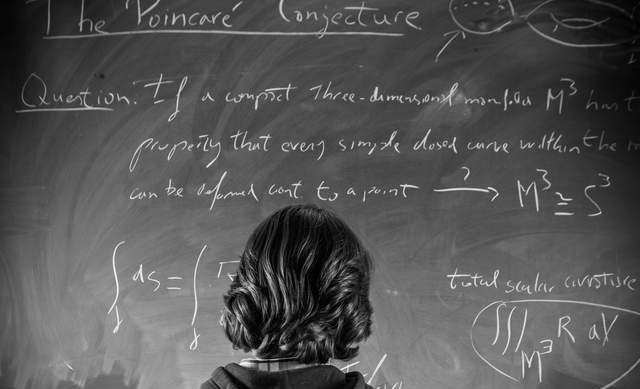 The Poincaré Conjecture
Question. If a compact three-dimensional manifold M³ has t
property that every simple closed curve within the m
can be deformed cont. to a point —?→ M³ ≅ S³
∫γ ds = ∫γ
total scalar curvature
∫∫∫M³ R dV